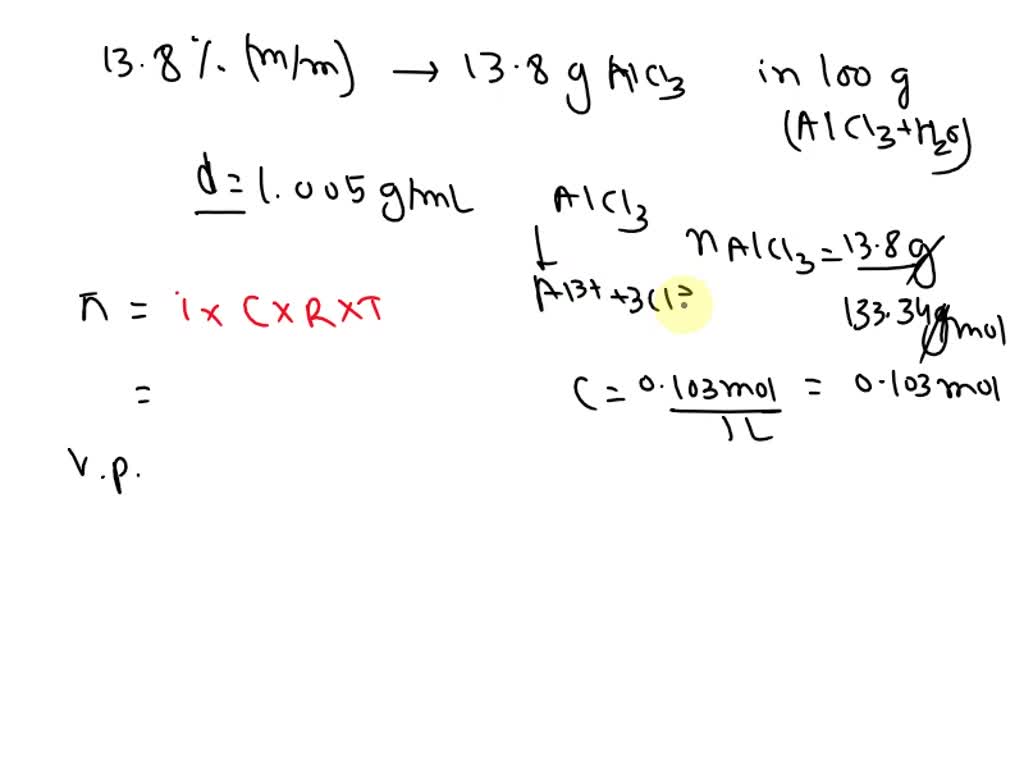 13.8 % (m/m) → 13.8 g AlCl3 in 100 g
(AlCl3+H2O)
d = 1.005 g/mL
AlCl3
Al3+ + 3Cl-
nAlCl3 = 13.8 g
133.34 g/mol
π = i x C x R x T
C = 0.103 mol = 0.103 mol
1 L
=
V.p.